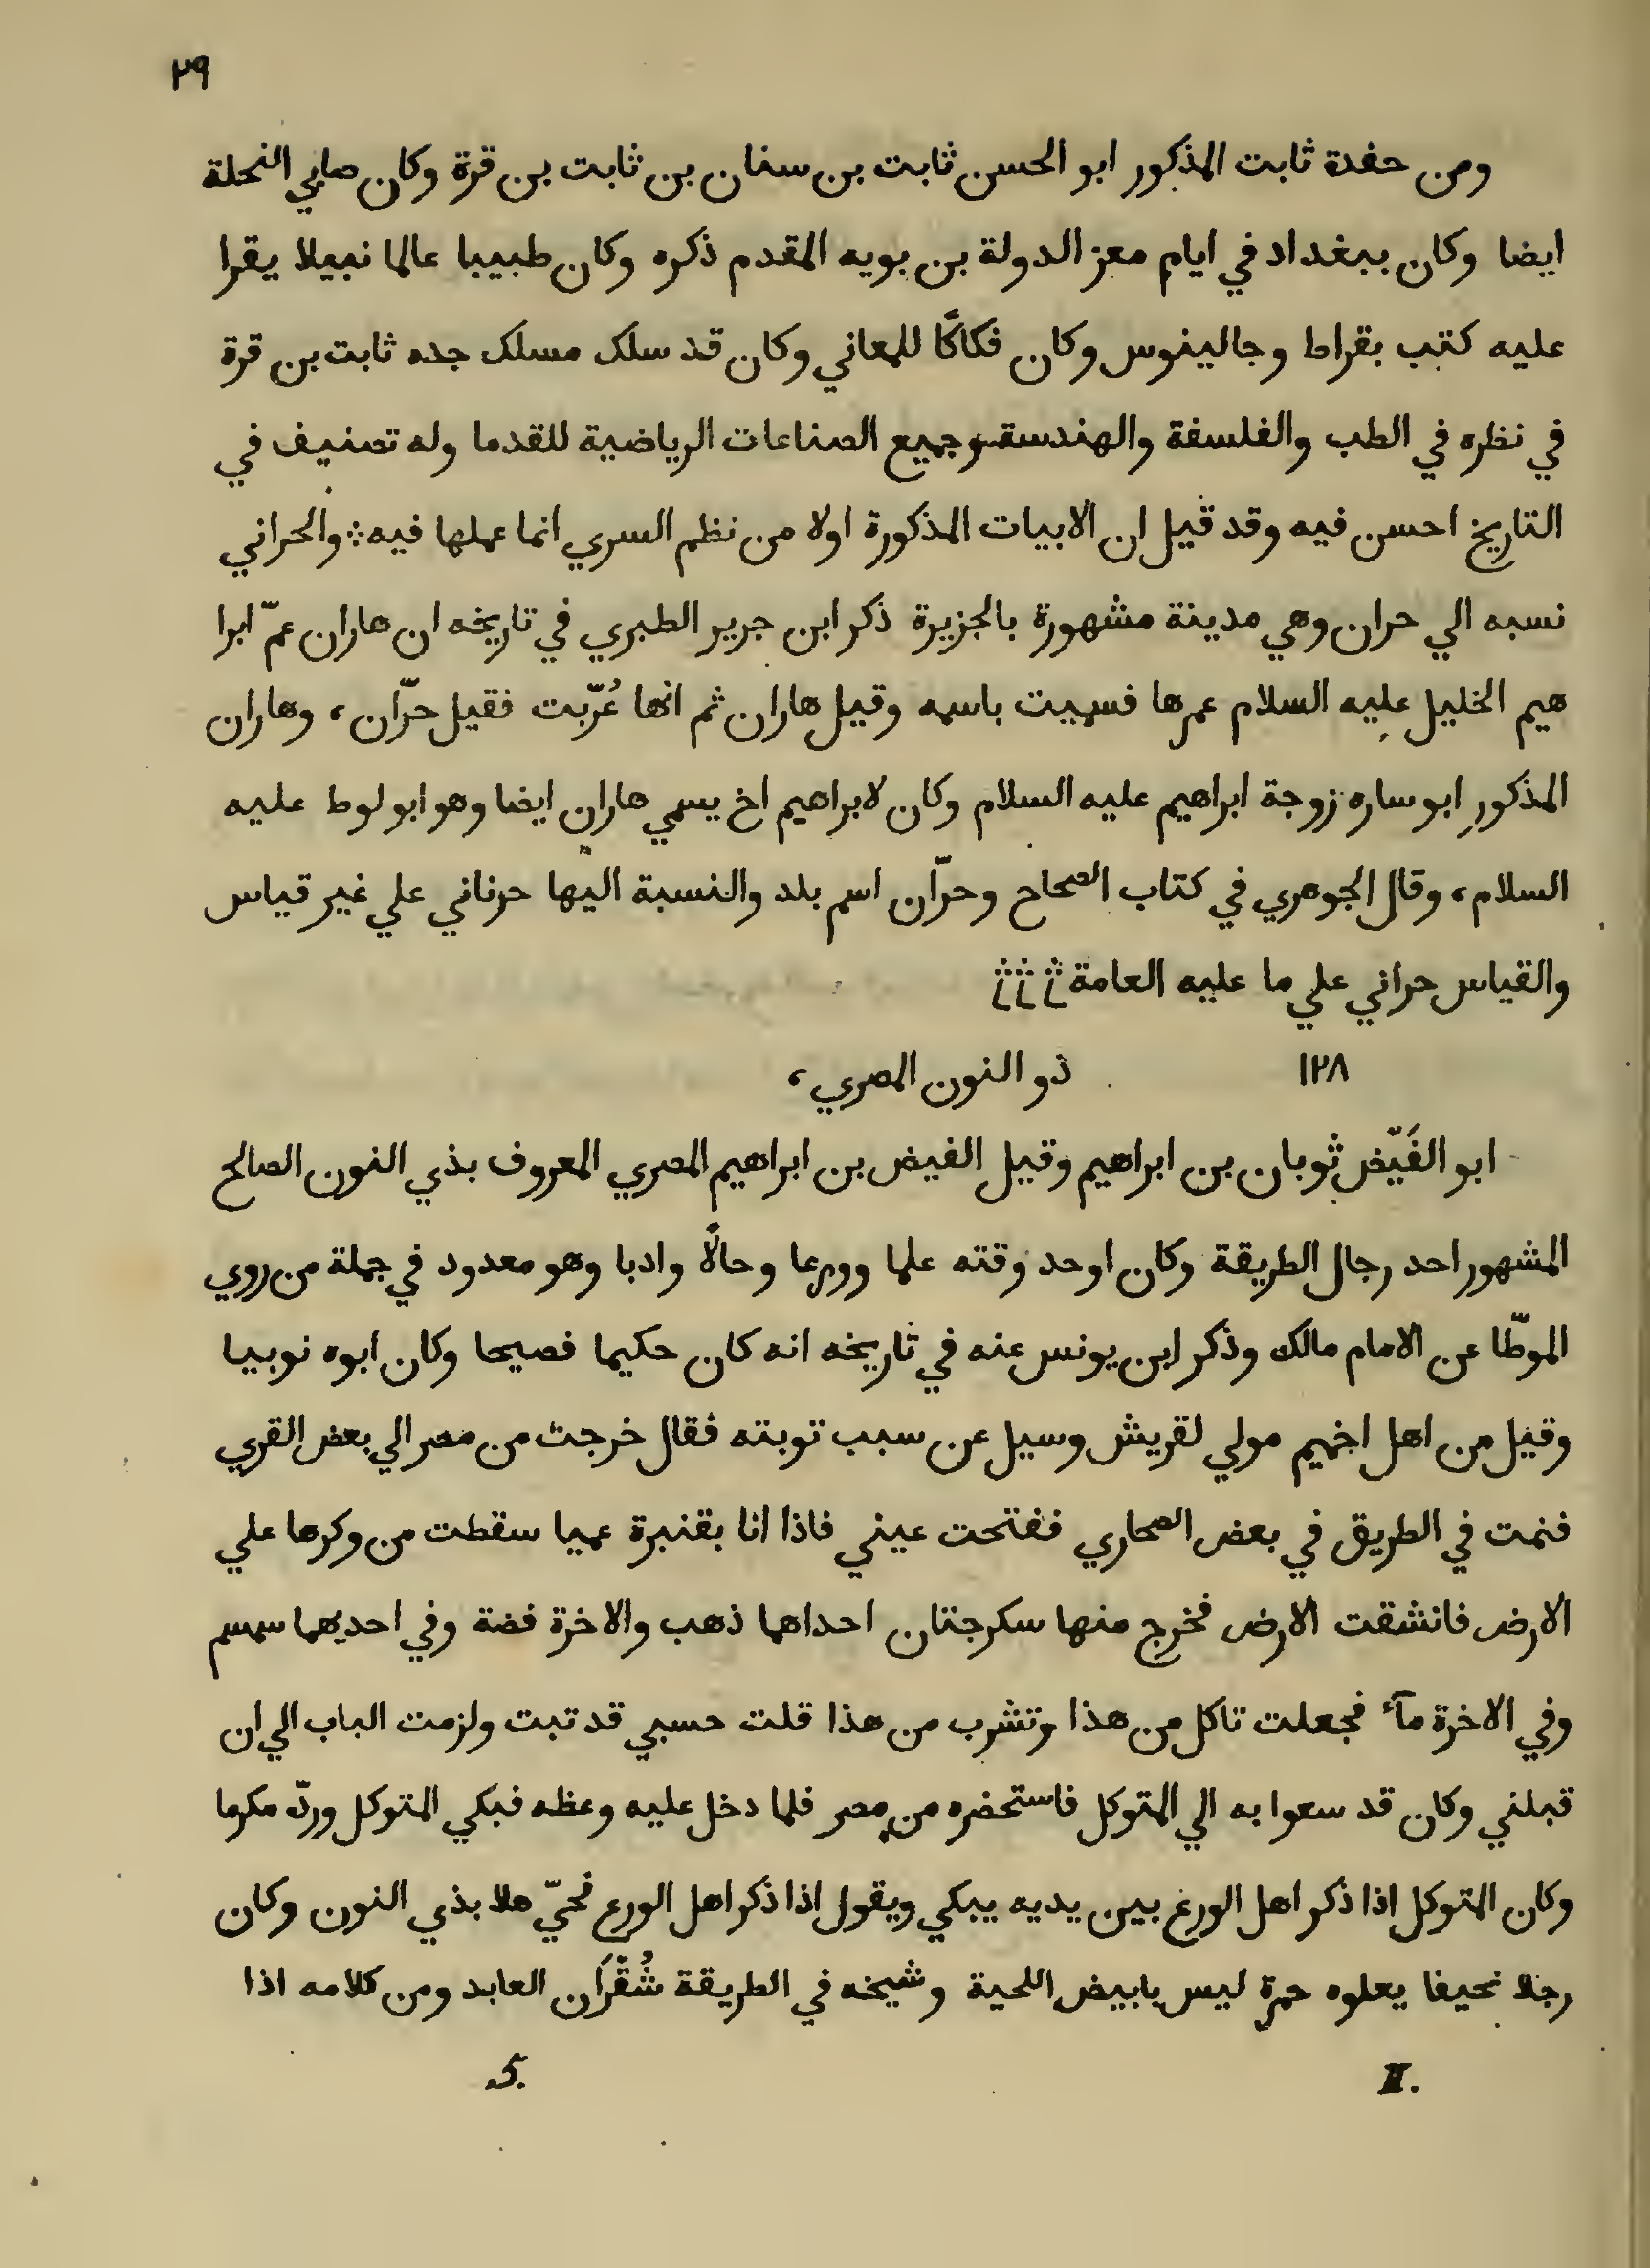 ٢٩
ومن حفدة ثابت المذكور ابو الحسن ثابت بن سنان بن ثابت بن قرة وكان صابي النحلة
ايضا وكان ببغداد في ايام معز الدولة بن بويه المقدم ذكره وكان طبيبا عالما نبيلا يقرا
عليه كتب بقراط وجالينوس وكان فكاكًا للمعاني وكان قد سلك مسلك جده ثابت بن قرة
في نظره في الطب والفلسفة والهندسة وجميع الصناعات الرياضية للقدما وله تصنيف في
التاريخ احسن فيه وقد قيل ان الابيات المذكورة اولا من نظم السري انما عملها فيه ⁘ والحراني
نسبه الي حران وهي مدينة مشهورة بالجزيرة ذكر ابن جرير الطبري في تاريخه ان هاران عمّ ابرا
هيم الخليل عليه السلام عمرها فسميت باسمه وقيل هاران ثم انها عُرّبت فقيل حرّان، وهاران
المذكور ابو ساره زوجة ابراهيم عليه السلام وكان لابراهيم اخ يسمي هاران ايضا وهو ابو لوط عليه
السلام، وقال الجوهري في كتاب الصحاح وحرّان اسم بلد والنسبة اليها حرناني علي غير قياس
والقياس حراني علي ما عليه العامة
١٢٨ ذو النون المصري،
ابو الفَيّض ثوبان بن ابراهيم وقيل الفيض بن ابراهيم المصري المعروف بذي النون الصالح
المشهور احد رجال الطريقة وكان اوحد وقته علما وورعا وحالًا وادبا وهو معدود في جملة من روي
الموطّا عن الامام مالك وذكر ابن يونس عنه في تاريخه انه كان حكيما فصيحا وكان ابوه نوبيا
وقيل من اهل اخميم مولي لقريش وسيل عن سبب توبته فقال خرجت من مصر الي بعض القري
فنمت في الطريق في بعض الصحاري ففتحت عيني فاذا انا بقنبرة عميا سقطت من وكرها علي
الارض فانشقت الارض فخرج منها سكرجتان احداها ذهب والاخرة فضة وفي احديهما سمسم
وفي الاخرة مآء فجعلت تاكل من هذا وتشرب من هذا قلت حسبي قد تبت ولزمت الباب الي ان
قبلني وكان قد سعوا به الي المتوكل فاستحضره من مصر فلما دخل عليه وعظه فبكي المتوكل وردّ مكرما
وكان المتوكل اذا ذكر اهل الورع بين يديه يبكي ويقول اذا ذكر اهل الورع فحيّ هلا بذي النون وكان
رجلا نحيفا يعلوه حمرة ليس بابيض اللحية وشيخه في الطريقة شُقْرَان العابد ومن كلامه اذا
II. 5.